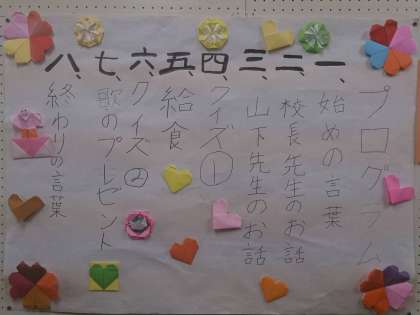 プログラム
一、始めの言葉
二、校長先生のお話
三、山下先生のお話
四、クイズ①
五、給食
六、クイズ②
七、歌のプレゼント
八、終わりの言葉